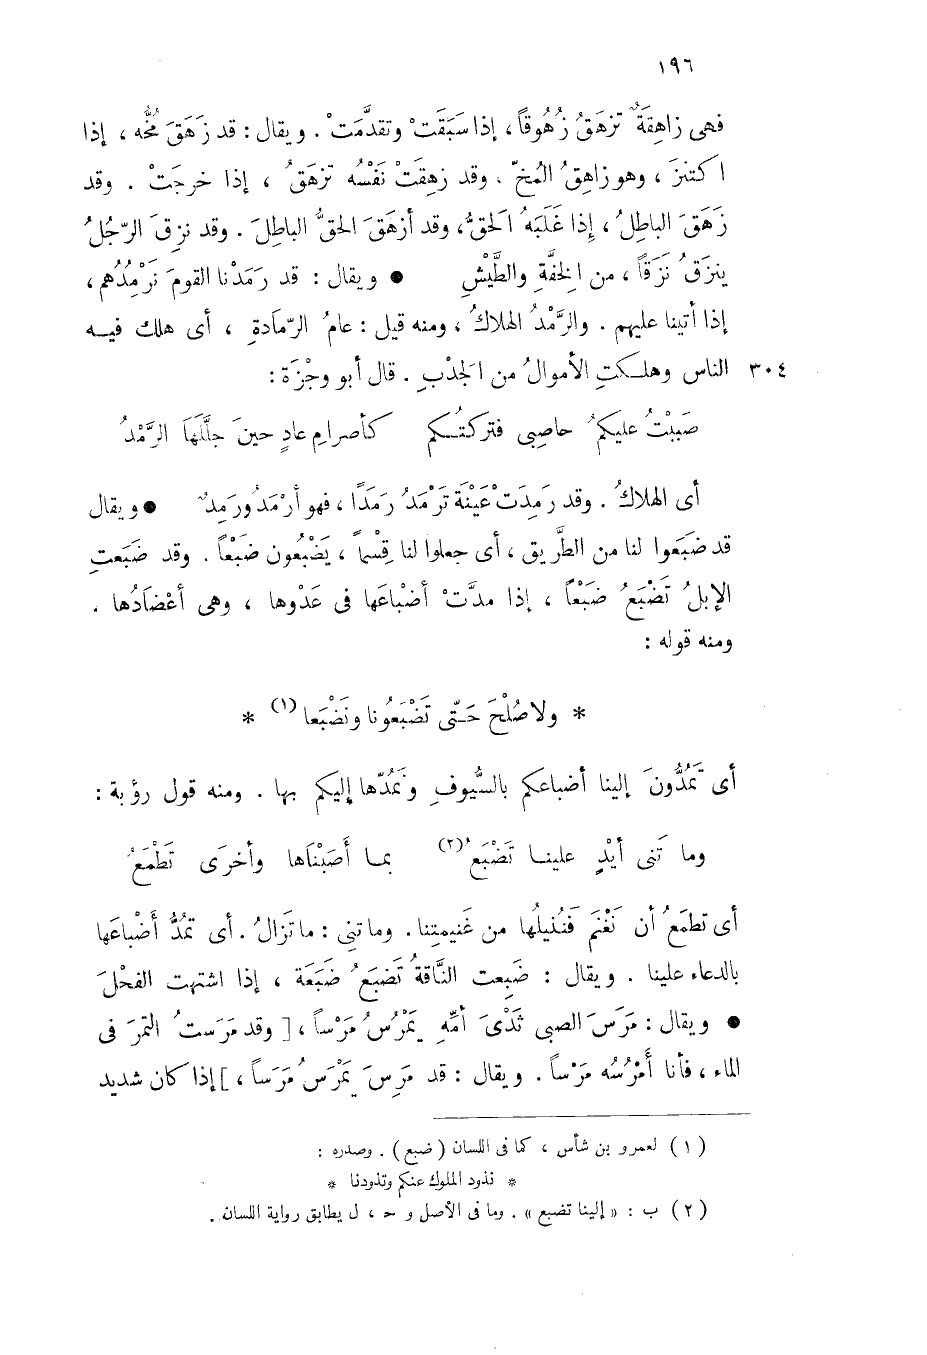 ١٩٦
فهى زاهِقَةٌ تزهَقُ زُهُوقاً ، إذا سَبَقَتْ وتقدَّمَتْ . ويقال : قد زَهَقَ مُخُّه ، إذا
اكتنزَ ، وهو زاهِقُ المُخّ . وقد زهِقَتْ نَفْسُه تزهَقُ ، إذا خرجَتْ . وقد
زَهَقَ الباطِلُ ، إِذا غَلَبَهُ الَحقُّ، وقد أزهَقَ الحقُّ الباطِلَ . وقد نزِقَ الرّجُلُ
ينزَقُ نَزَقاً ، من الِخفَّةِ والطَّيْشِ ● ويقال : قد رَمَدْنا القومَ نَرْمِدُهُم ،
إذا أتينا عليهم . والرَّمْدُ الهلاكُ ، ومنه قيل : عامُ الرّمادةِ ، أى هلك فيـه
٣٠٤ الناس وهلـكتِ الأموالُ من الَجدْبِ . قال أبو وجْزَة :
صَبَبْتُ عليكمُ حاصِبى فتركتُـكم كأصرامِ عادٍ حينَ جلَّلَهَا الرَّمْدُ
أى الهلاكُ . وقد رَمِدَتْ عَيْنُهَ تَرْمَدُ رَمَدًا ، فهو أرْمَدُ ورَمِدٌ ● ويقال
قد ضبَعوا لنا من الطَّريق ، أى جعلوا لنا قِسْماً ، يَضْبُعون ضَبْعاً . وقد ضَبَعتِ
الإبلُ تَضْبَعُ ضَبْعاً ، إذا مدَّتْ أضْباعَها فى عَدْوها ، وهى أعْضَادُها .
ومنه قوله :
* ولا صُلْحَ حَـتّى تَضْبَعُونا ونَضْبَعا (١) *
أى تَمُدُّونَ إلينا أضباعكم بالسُّيوفِ ونَمُدّها إليكم بها . ومنه قول رؤبة :
وما تَنى أيْدٍ علينـا تَضْبَعُ (٢) بمـا أَصَبْنَاها وأخرَى تَطْمَعُ
أى تطمَعُ أن نَغْنَم فَنُنيلُها من غَنيمتِنا . وما تنِى : ما تَزالُ . أى تمُدُّ أَضْباعَها
بالدعاء علينا . ويقال : ضَبِعت النَّاقةُ تَضبَعُ ضَبَعَة ، إذا اشتهت الفحْلَ
● ويقال : مَرَسَ الصبى ثَدْىَ أمِّهِ يَمْرُسُ مَرْساً ، [ وقد مَرَستُ التمرَ فى
الماء ، فأنا أَمْرُسُه مَرْساً . ويقال : قد مَرِسَ يَمْرَسُ مَرَساً ، ] إذا كان شديد
(١) لعمرو بن شأس ، كما فى اللسان ( ضبع ) . وصدره :
* نذود الملوك عنكم وتذودنا *
(٢) ب : « إلينا تضبع » . وما فى الأصل و ح ، ل يطابق رواية اللسان .